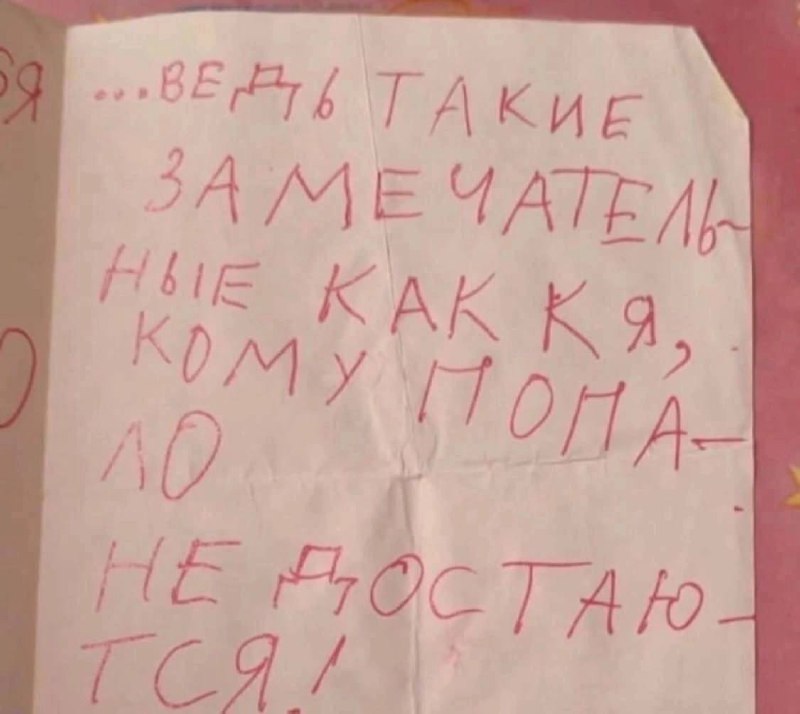 бя
...ВЕДЬ ТАКИЕ
ЗАМЕЧАТЕЛЬ-
НЫЕ КАК К Я,
КОМУ ПОПА-
ЛО
НЕ ДОСТАЮ-
ТСЯ!